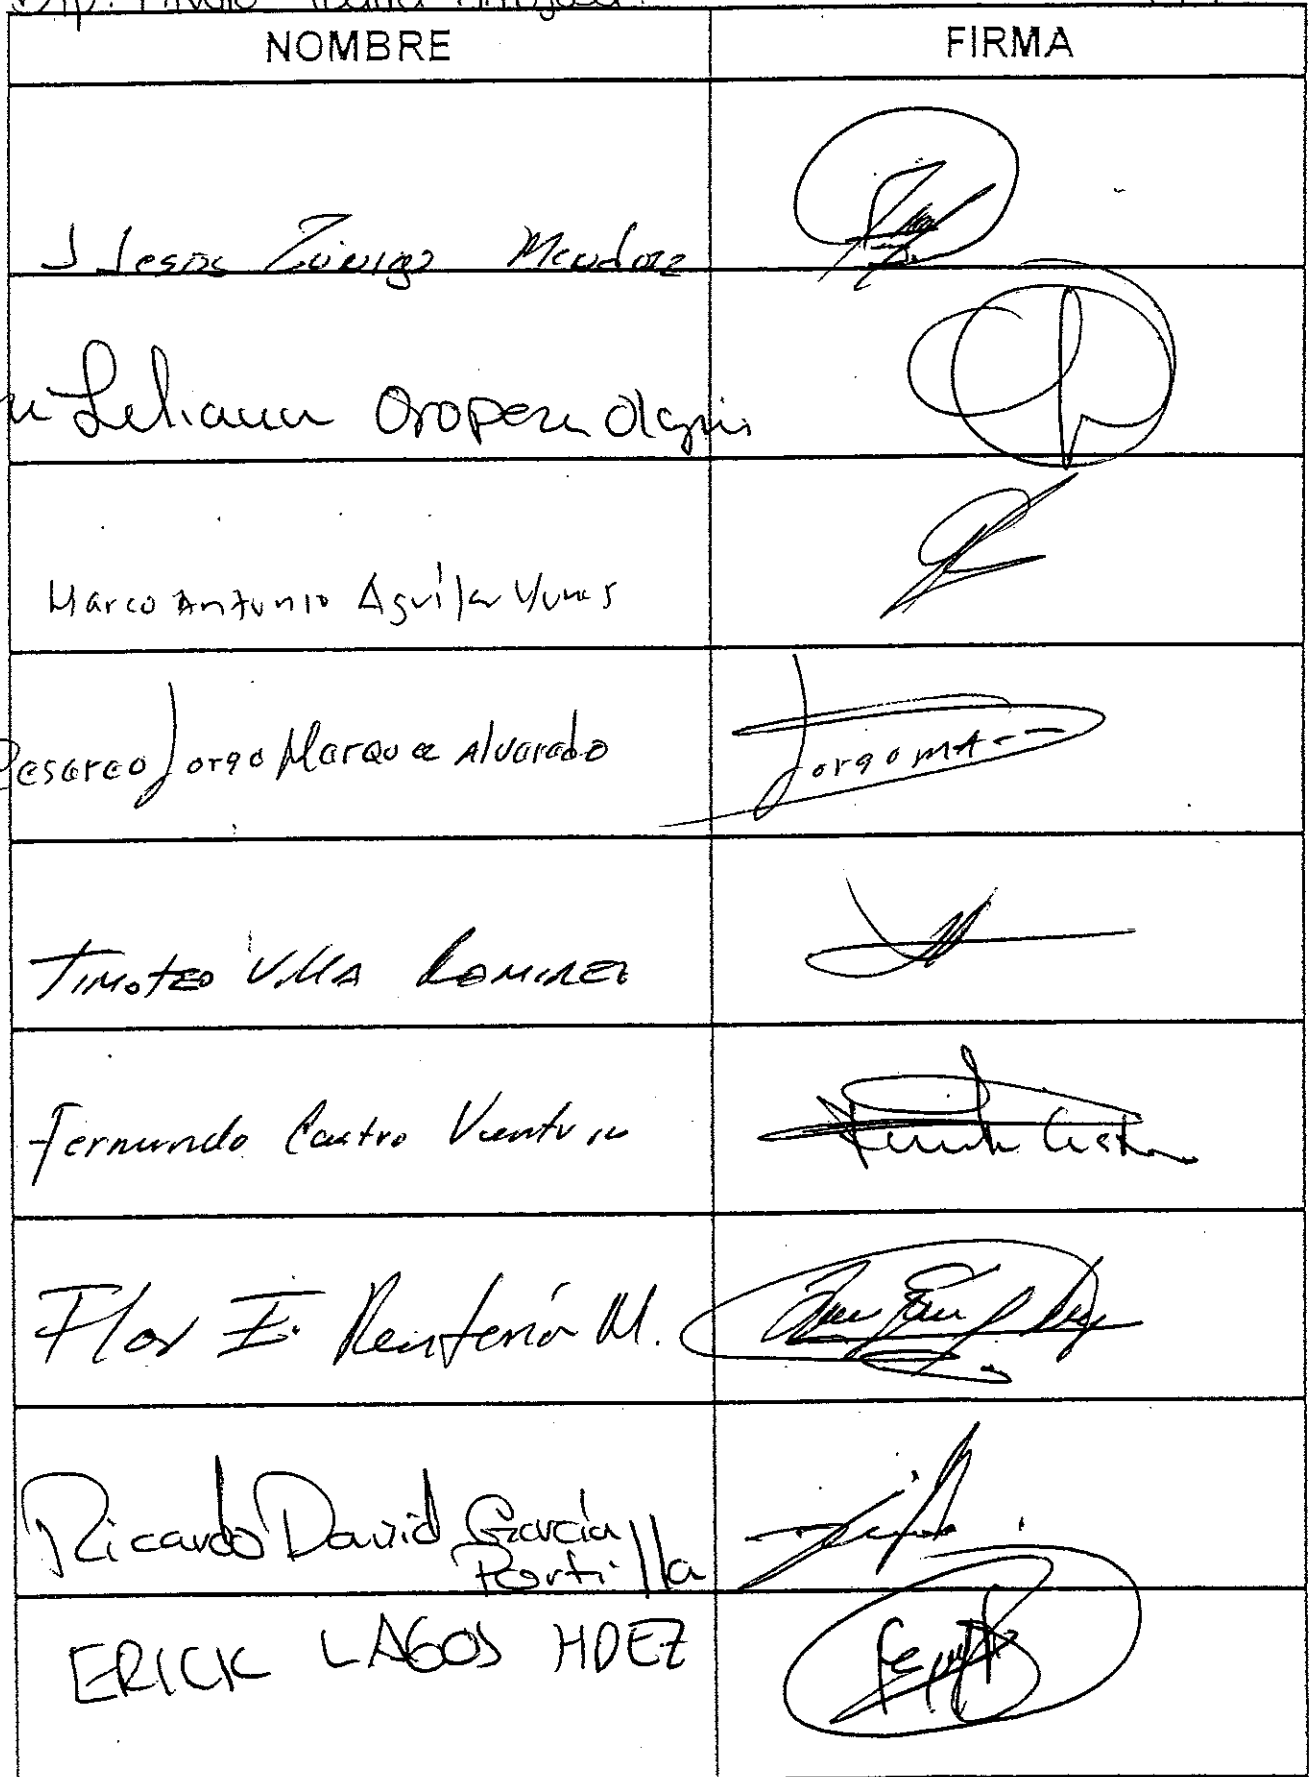 NOMBRE FIRMA
J Jesús Zúñiga Mendoza
Liliana Oropeza Olguin
Marco Antonio Aguilar Yunes
Cesareo Jorge Marquez Alvarado
Jorge M A
TIMOTEO VILLA RAMIREZ
Fernando Castro Ventura
Flor E. Rentería M.
Ricardo David García
Portilla
ERICK LAGOS HDEZ